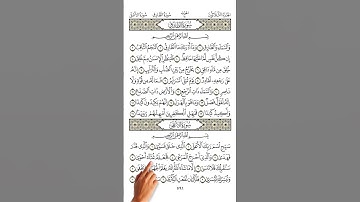 الجزء الثلاثون سورة الطارق سورة الأعلى
سُورَةُ الطَّارِقِ
بِسْمِ اللَّهِ الرَّحْمَٰنِ الرَّحِيمِ
وَالسَّمَاءِ وَالطَّارِقِ ١ وَمَا أَدْرَاكَ مَا الطَّارِقُ ٢ النَّجْمُ الثَّاقِبُ ٣
إِن كُلُّ نَفْسٍ لَّمَّا عَلَيْهَا حَافِظٌ ٤ فَلْيَنظُرِ الْإِنسَانُ مِمَّ خُلِقَ ٥
خُلِقَ مِن مَّاءٍ دَافِقٍ ٦ يَخْرُجُ مِن بَيْنِ الصُّلْبِ وَالتَّرَائِبِ ٧ إِنَّهُ
عَلَىٰ رَجْعِهِ لَقَادِرٌ ٨ يَوْمَ تُبْلَى السَّرَائِرُ ٩ فَمَا لَهُ مِن قُوَّةٍ وَلَا نَاصِرٍ
١٠ وَالسَّمَاءِ ذَاتِ الرَّجْعِ ١١ وَالْأَرْضِ ذَاتِ الصَّدْعِ ١٢ إِنَّهُ
لَقَوْلٌ فَصْلٌ ١٣ وَمَا هُوَ بِالْهَزْلِ ١٤ إِنَّهُمْ يَكِيدُونَ كَيْدًا ١٥
وَأَكِيدُ كَيْدًا ١٦ فَمَهِّلِ الْكَافِرِينَ أَمْهِلْهُمْ رُوَيْدًا ١٧
سُورَةُ الأَعْلَى
بِسْمِ اللَّهِ الرَّحْمَٰنِ الرَّحِيمِ
سَبِّحِ اسْمَ رَبِّكَ الْأَعْلَى ١ الَّذِي خَلَقَ فَسَوَّىٰ ٢ وَالَّذِي قَدَّرَ
فَهَدَىٰ ٣ وَالَّذِي أَخْرَجَ الْمَرْعَىٰ ٤ فَجَعَلَهُ غُثَاءً أَحْوَىٰ ٥
سَنُقْرِئُكَ فَلَا تَنسَىٰ ٦ إِلَّا مَا شَاءَ اللَّهُ إِنَّهُ يَعْلَمُ الْجَهْرَ وَمَا يَخْفَىٰ
٥٩١